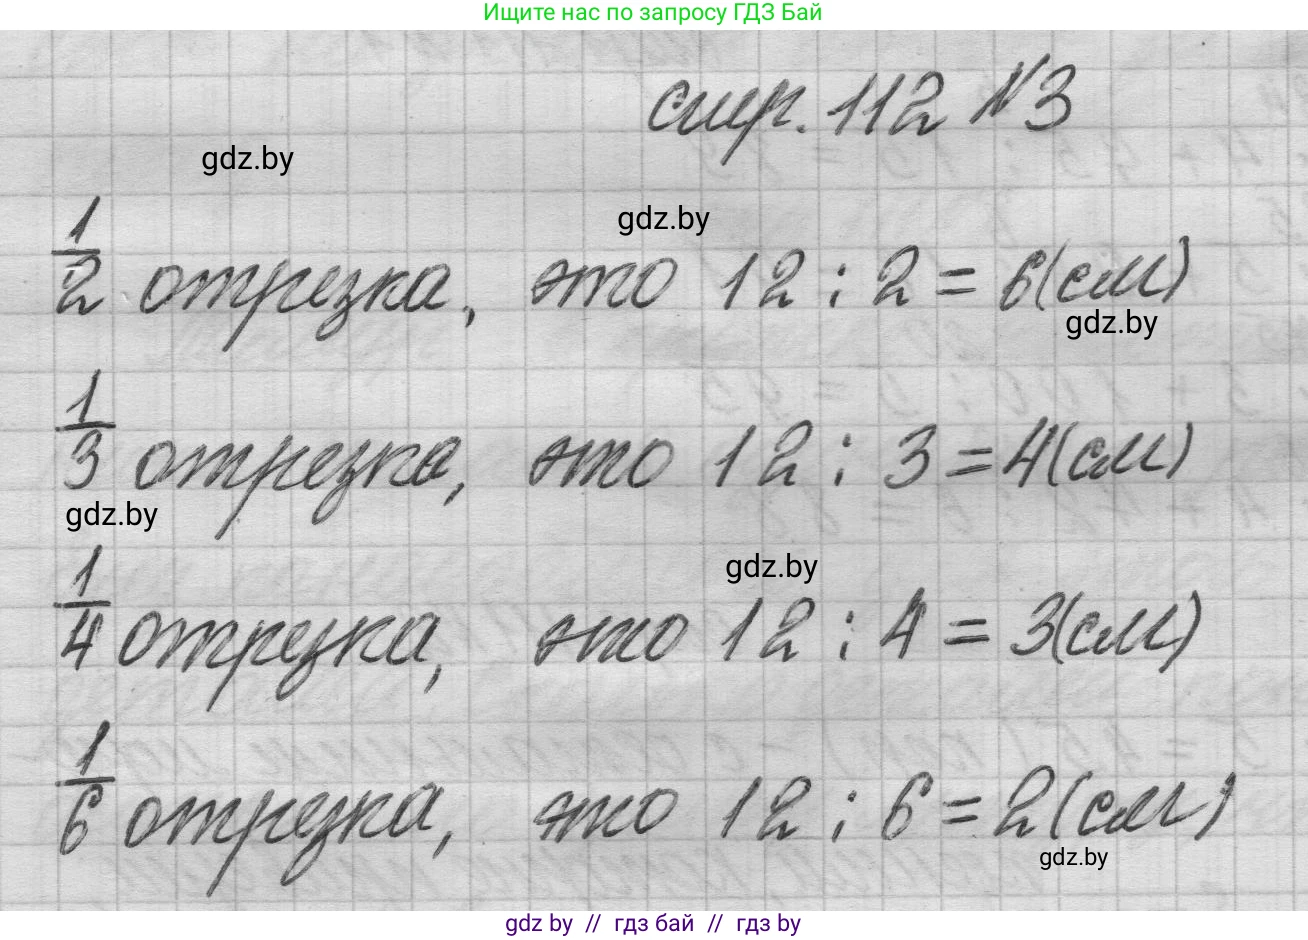 Ищите нас по запросу ГДЗ Бай
стр. 112 №3
gdz.by
gdz.by
1/2 отрезка, это 12 : 2 = 6(см)
gdz.by
1/3 отрезка, это 12 : 3 = 4(см)
gdz.by
gdz.by
1/4 отрезка, это 12 : 4 = 3(см)
1/6 отрезка, это 12 : 6 = 2(см)
gdz.by
gdz by // гдз бай // gdz by